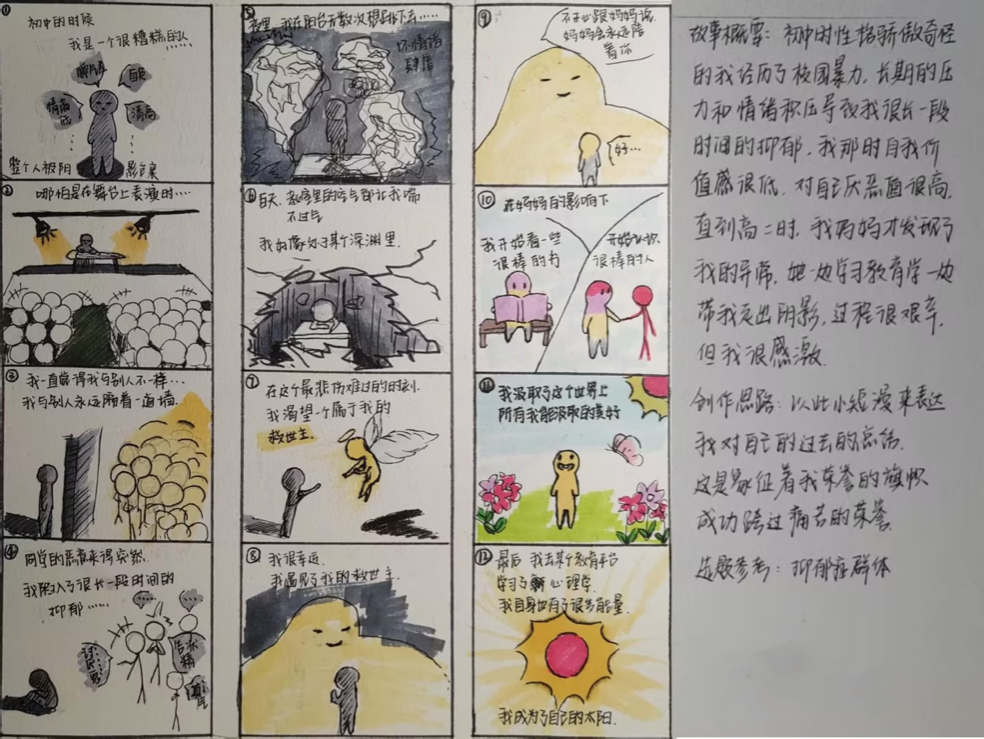 ①
初中的时候
我是一个很糟糕的人
自卑
清高
整个人被阴
影笼罩
②
哪怕是在舞台上表演时…
③
我一直觉得我与别人不一样…
我与别人永远隔着一道墙.
④
同学的恶意来得突然
我陷入了很长一段时间的
抑郁……
告状
精
⑤
夜里,我在阳台无数次想跳下去……
坏情绪
肆虐
⑥
白天,教室里的空气都让我喘
不过气
我如像处于某个深渊里.
⑦
在这个最悲伤难过的时刻.
我渴望一个属于我的
救世主.
⑧
我很幸运
我遇见了我的救世主.
⑨
不开心跟妈妈说.
妈妈会永远陪
着你
好…
⑩
在妈妈的影响下
我开始看一些
很棒的书
开始认识
很棒的人
⑪
我汲取了这个世界上
所有我能汲取的美好
⑫
最后 我去某个教育平台
学习了 心理学
我自身也有了很多能量.
我成为了自己的太阳.
故事概要: 初中时性格骄傲奇怪
的我经历了校园暴力,长期的压
力和情绪积压导致我很长一段
时间的抑郁.我那时自我价
值感很低,对自己厌恶面很高.
直到高二时,我妈妈才发现了
我的异常,她一边学习教育学一边
带我走出阴影,过程很艰辛,
但我很感激.
创作思路: 以此小短漫来表达
我对自己的过去的总结.
这是象征着我荣誉的旗帜
成功跨过痛苦的荣誉.
选题参考: 抑郁症群体